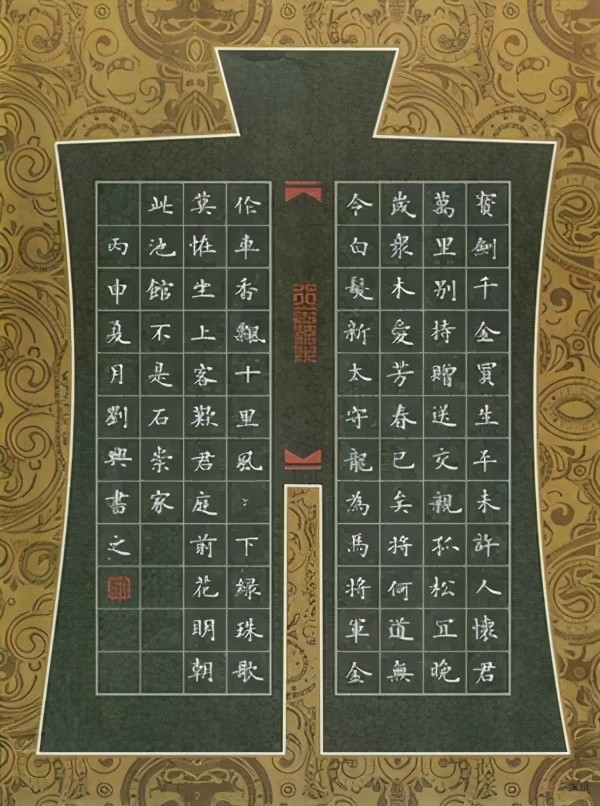 寳劍千金買生平未許人懷君
萬里別持贈送交親孤松冝晚
歲衆木愛芳春已矣將何道無
令白髮新太守龍為馬將軍金
作車香飄十里風〻下緑珠歌
莫恠坐上客歎君庭前花明朝
此池館不是石崇家
丙申夏月劉興書之